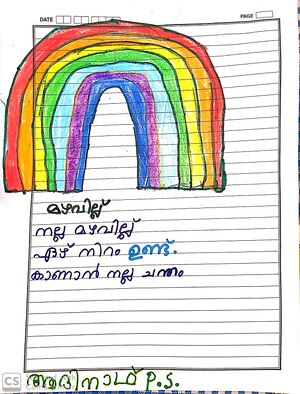 DATE
PAGE
മഴവില്ല്
നല്ല മഴവില്ല്
ഏഴ് നിറം ഉണ്ട്.
കാണാൻ നല്ല ചന്തം
CS
ആദിനാഥ് P.S.